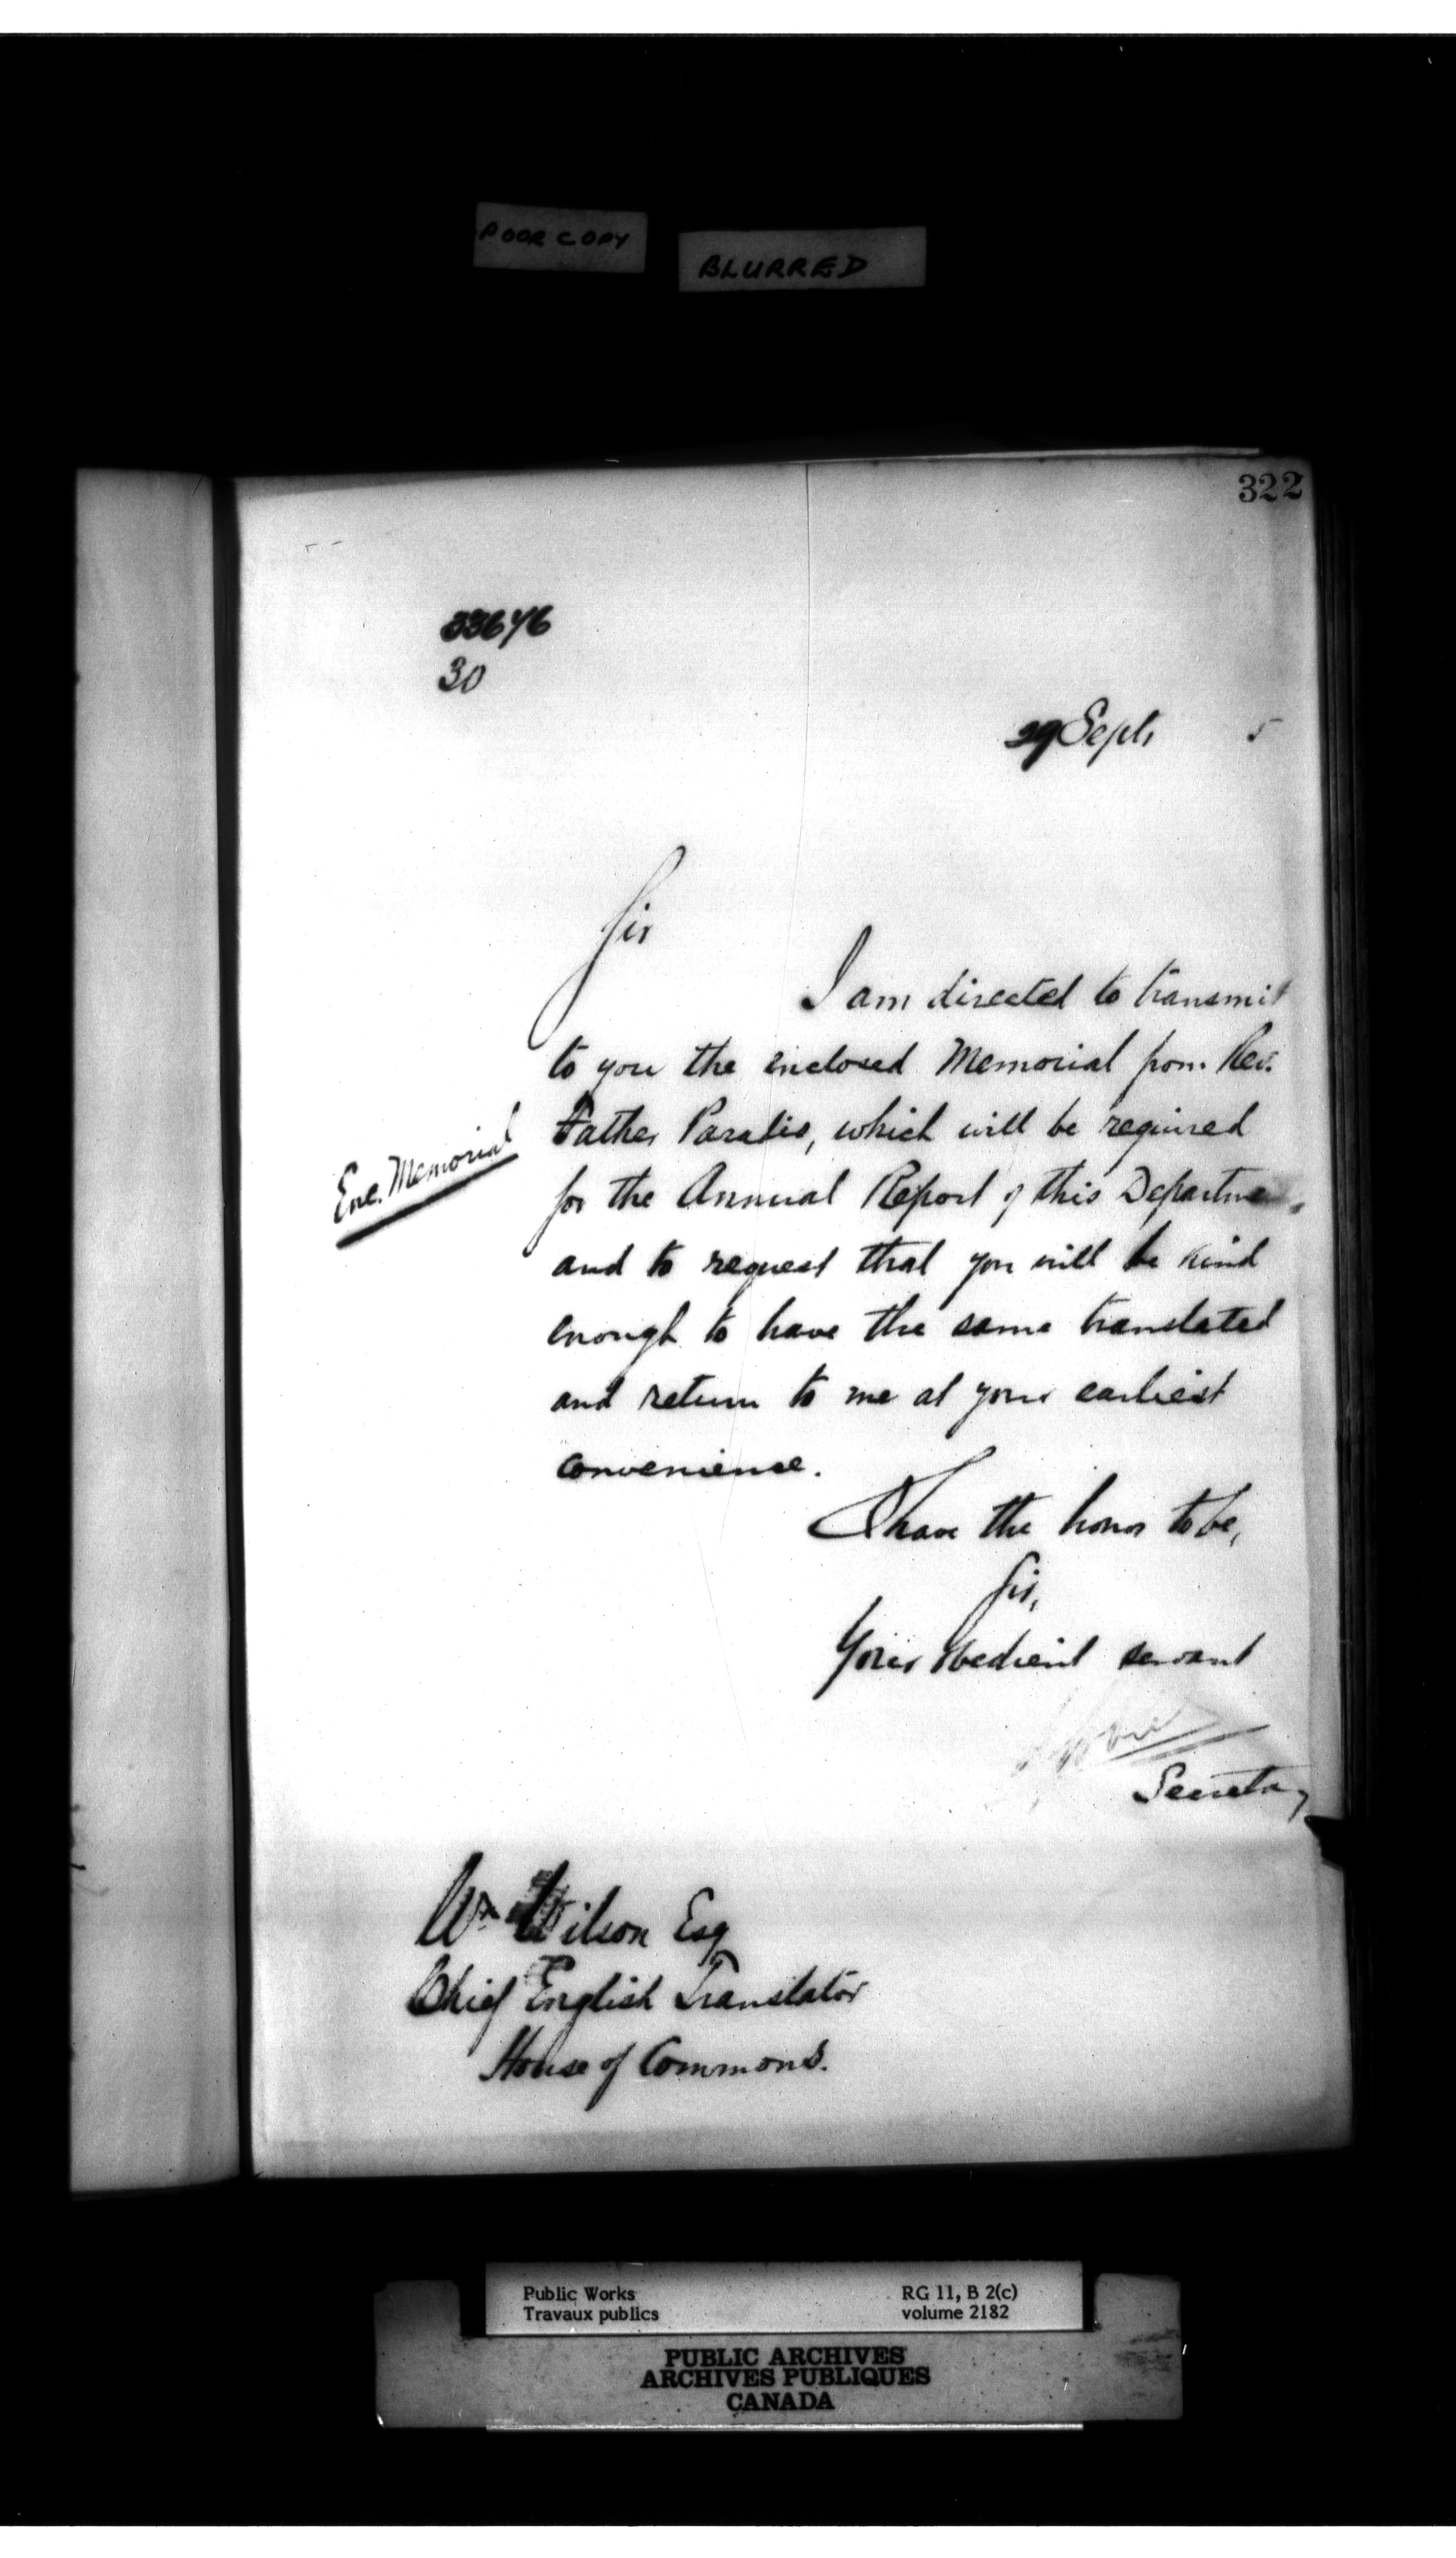 POOR COPY
BLURRED
322
33646
30
29 Sept, 5
Sir
I am directed to transmit
to you the enclosed Memorial from Rev.
Father Paradis, which will be required
Enc. Memorial
for the Annual Report of this Departme
and to request that you will be kind
enough to have the same translated
and return to me at your earliest
convenience.
I have the honor to be,
Sir,
Your obedient servant
Secretary
Wm Wilson Esq
Chief English Translator
House of Commons.
Public Works
Travaux publics
RG 11, B 2(c)
volume 2182
PUBLIC ARCHIVES
ARCHIVES PUBLIQUES
CANADA